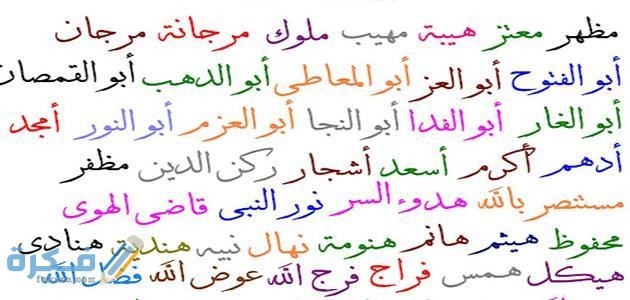 مظهر معتز هيبة مهيب ملوك مرجانة مرجان
أبو الفتوح أبو العز أبو المعاطى أبو الدهب أبو القمصان
أبو الغار أبو الفدا أبو النجا أبو العزم أبو النور أمجد
أدهم أكرم أسعد أشجار ركن الدين مظفر
مستنصر بالله هدوء السر نور النبى قاضى الهوى
محفوظ هيثم هانم هنومة نهال نبيه هندية هنادى
هيكل همس فراج فرج الله عوض الله فضل الله
فكرة